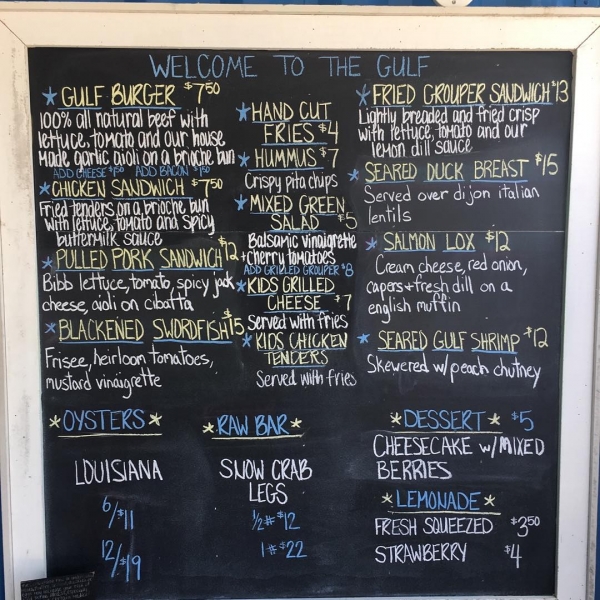 WELCOME TO THE GULF
GULF BURGER $7.50
100% all natural beef with
lettuce, tomato and our house
made garlic aioli on a brioche bun
ADD CHEESE $1.50 ADD BACON $1.50
CHICKEN SANDWICH $7.50
Fried tenders on a brioche bun
with lettuce, tomato and spicy
buttermilk sauce
PULLED PORK SANDWICH $12
Bibb lettuce, tomato, spicy jack
cheese, aioli on cibatta
BLACKENED SWORDFISH $15
Frisee, heirloom tomatoes,
mustard vinaigrette
HAND CUT
FRIES $4
HUMMUS $7
Crispy pita chips
MIXED GREEN
SALAD $5
Balsamic vinaigrette
+ cherry tomatoes
ADD GRILLED GROUPER $8
KIDS GRILLED
CHEESE $7
Served with fries
KIDS CHICKEN
TENDERS
Served with fries
FRIED GROUPER SANDWICH $13
Lightly breaded and fried crisp
with lettuce, tomato and our
lemon dill sauce
SEARED DUCK BREAST $15
Served over dijon italian
lentils
SALMON LOX $12
Cream cheese, red onion,
capers + fresh dill on a
english muffin
SEARED GULF SHRIMP $12
Skewered w/ peach chutney
*OYSTERS*
LOUISIANA
6/$11
12/$19
*RAW BAR*
SNOW CRAB
LEGS
1/2# $12
1# $22
*DESSERT* $5
CHEESECAKE w/MIXED
BERRIES
*LEMONADE*
FRESH SQUEEZED $3.50
STRAWBERRY $4